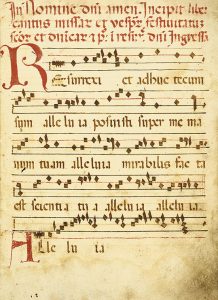 In Nomine dñi amen. Incipit libe
cantus missar et vesp
scor et
Resurrexi et adhuc tecum
sum alleluia posuisti super me ma
num tuam alleluia mirabilis fac ta
est scientia tu a alleluia alleluia.
Alle lu ia